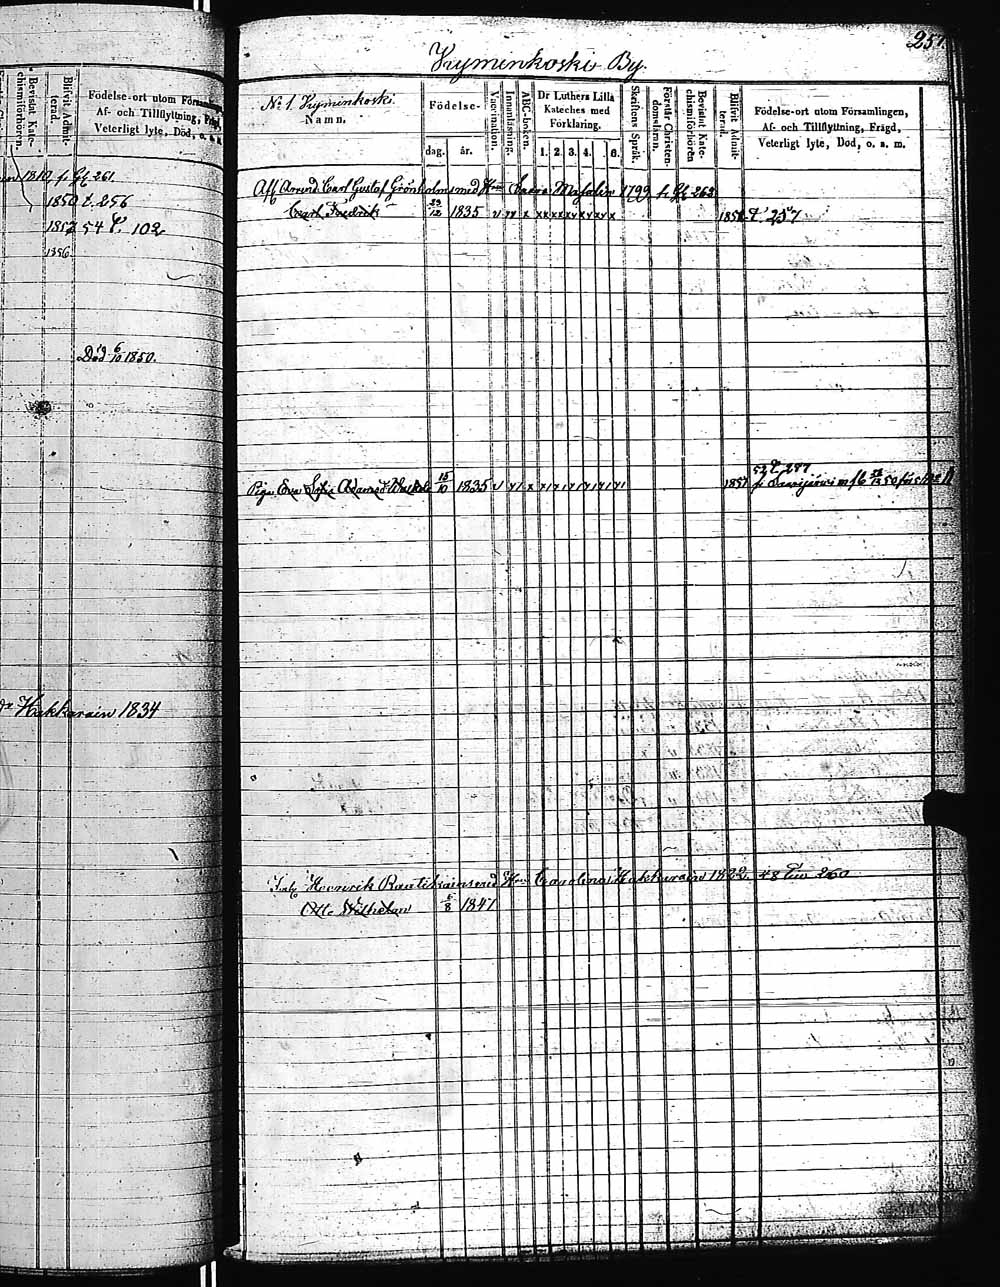 Bevisist Kate-
chismiförhören.
Blifvit Admit-
terad.
Födelse-ort utom Församlingen,
Af- och Tillflyttning, Frägd,
Veterligt lyte, Död, o. a. m.
1810 f. Gf 261.
1850 t. 256
1852 54 T. 102
1356
Död 6/10 1850.
Hakkarain 1834
257.
Kyminkoski By.
N:o 1. Kyminkoski.
Namn.
Födelse-
dag.
år.
Vaccination.
Innanläsning.
ABC-boken.
Dr Luthers Lilla
Kateches med
Förklaring.
1. 2. 3. 4. 6.
Skriftens Språk.
Förstår Christen-
domsläran.
Bevisist Kate-
chismiförhören
Blifvit Admit-
terad.
Födelse-ort utom Församlingen,
Af- och Tillflyttning, Frägd,
Veterligt lyte, Död, o. a. m.
Aff Arrend. Carl Gustaf Grönholms med H:u Maria 1799 f. Gf 263
Carl Fredrik 29/12 1835 1858 T. 257
52 T. 277
Piga Eva Sofia Adamsd. 15/10 1835 1851
Inh. Henrik Rautiainens med H:u Carolina Hakkarain 1822 48 T. 260
Otto Wilhelm 5/8 1847